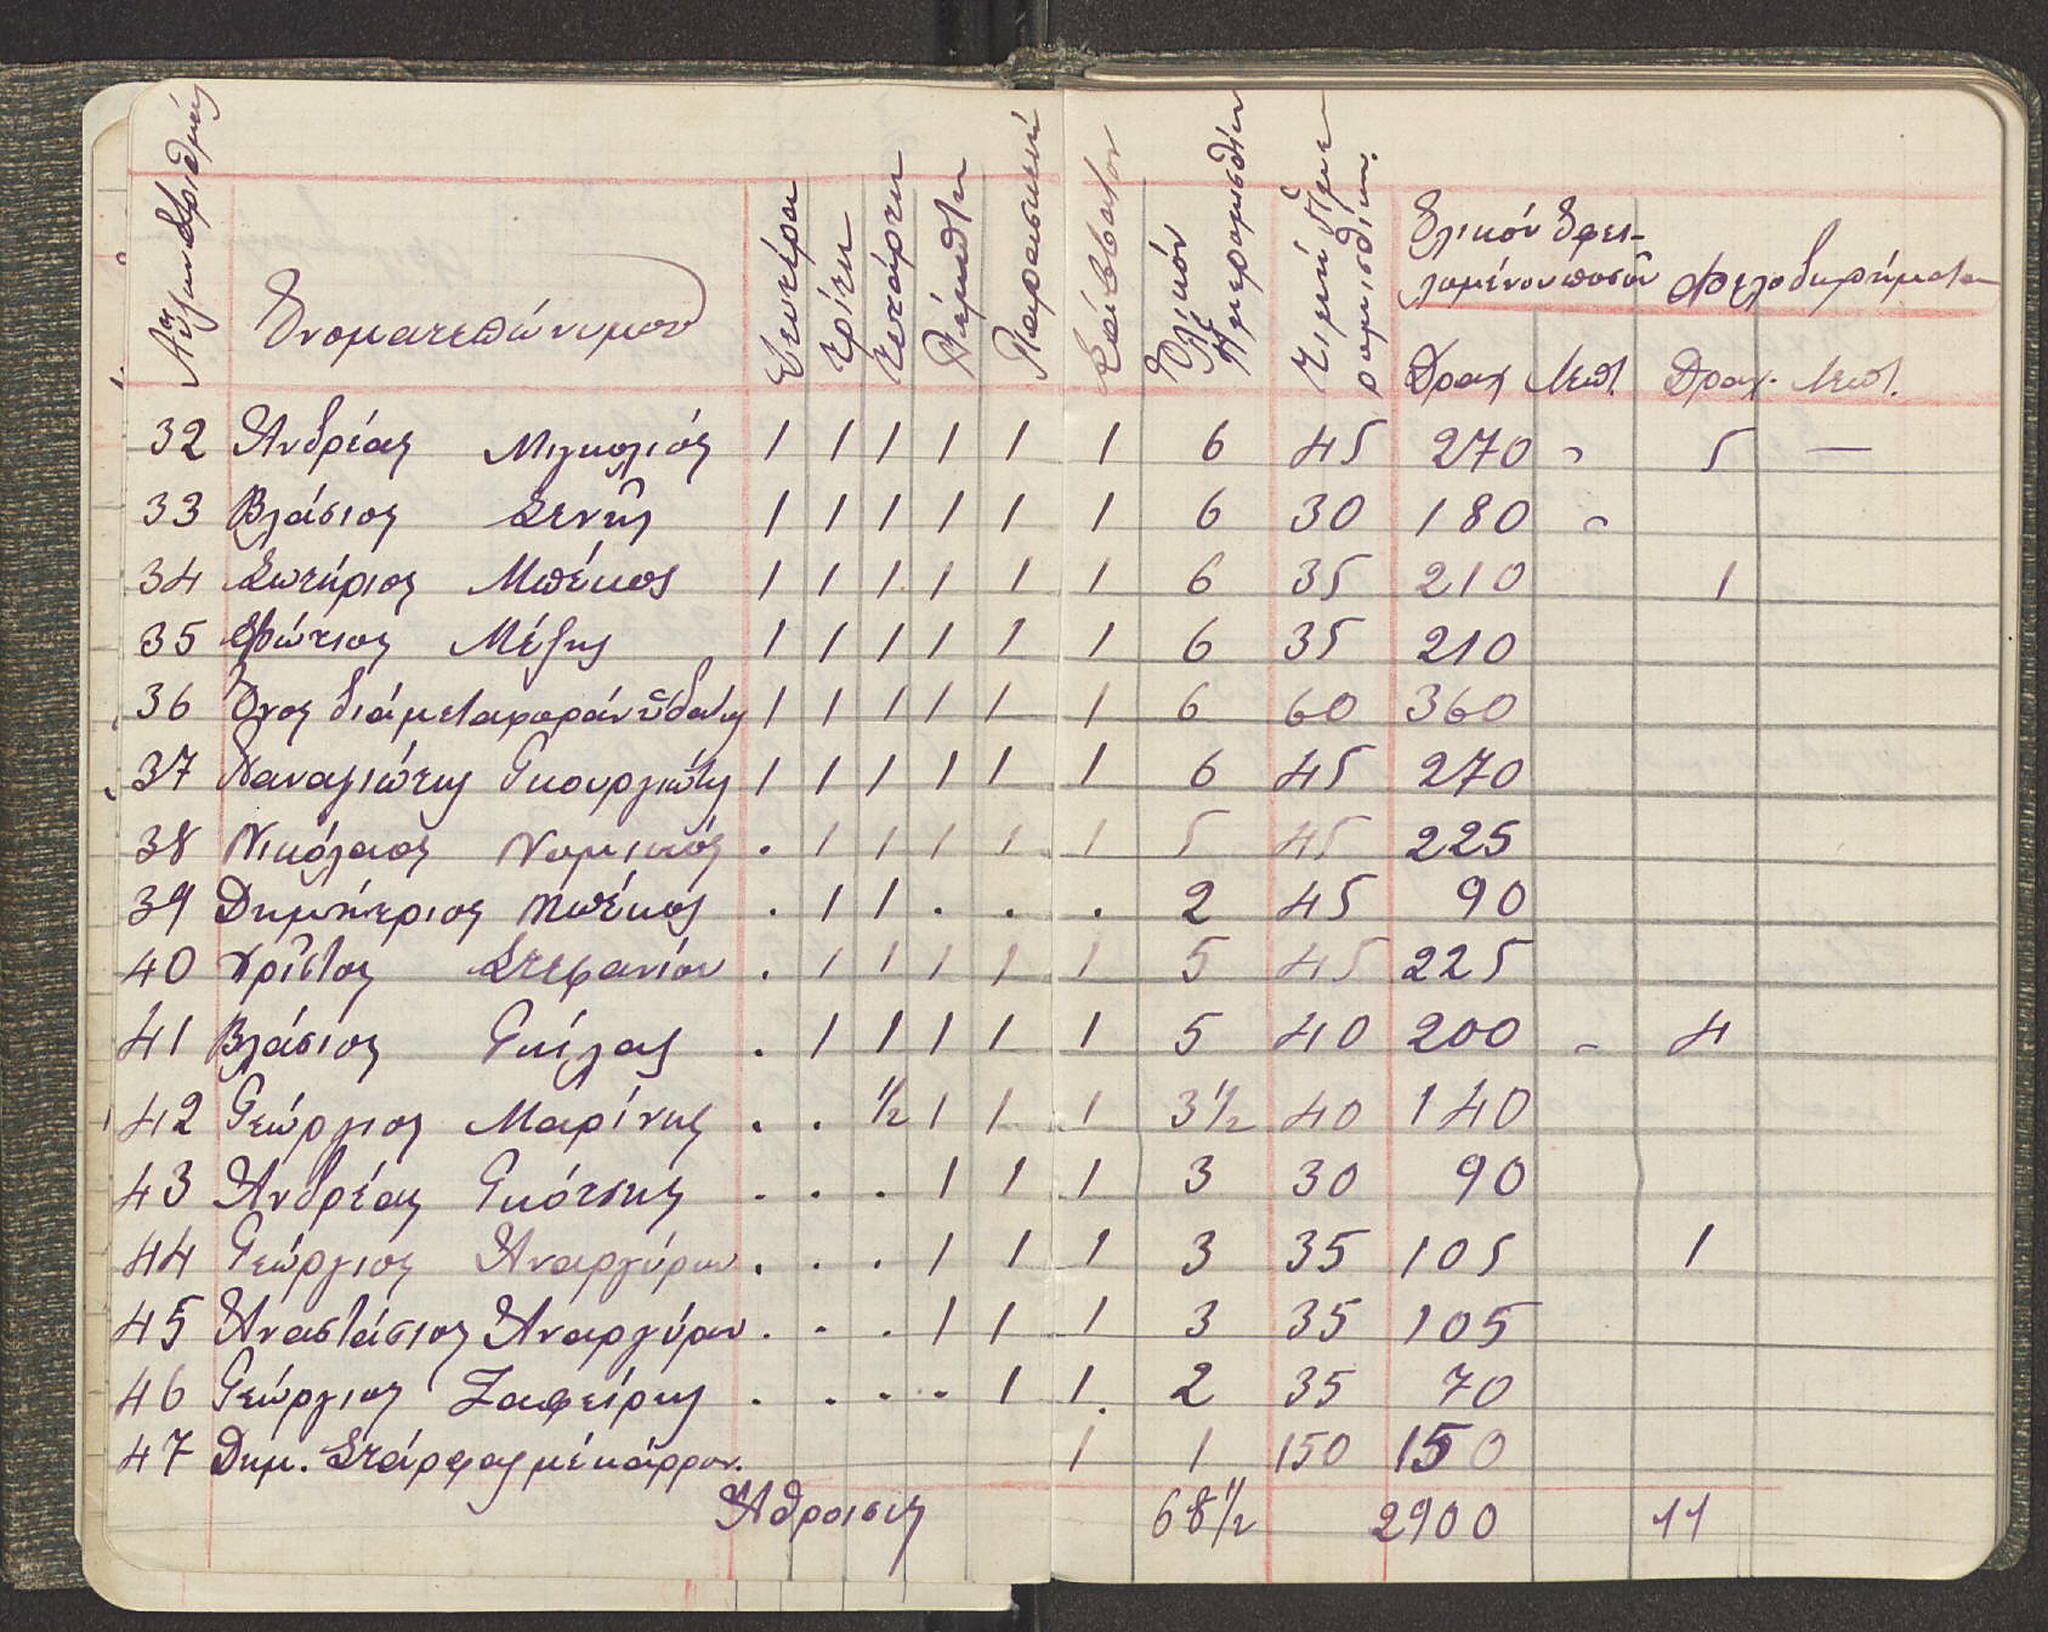 Αὔξων Ἀριθμός Ὀνοματεπώνυμον Δευτέρα Τρίτη Τετάρτη Πέμπτη Παρασκευή Σάββατον Ὁλικόν Ἡμερομισθίων Τιμή Ἡμερομισθίου Ὁλικόν Ὀφειλομένου ποσοῦ Φιλοδωρήματα
Δραχ Λεπτ. Δραχ. Λεπτ.
32 Ἀνδρέας Μιγκλιός 1 1 1 1 1 1 6 45 270 " 5 —
33 Βλάσιος Σενής 1 1 1 1 1 1 6 30 180 "
34 Σωτήριος Μπέκος 1 1 1. 1 1 1 6 35 210 1
35 Φώτιος Μέξης 1 1 1 1 1 1 6 35 210
36 Ὄνος διά μεταφοράν ὕδατος 1 1 1 1 1 1 6 60 360
37 Παναγιώτης Γκουργιώτης 1 1 1 1 1 1 6 45 270
38 Νικόλαος Νομικός . 1 1 1 1 1 5 45 225
39 Δημήτριος Μπέκος . 1 1 . . . 2 45 90
40 Χρῖστος Στεφανίου . 1 1 1 1 1 5 45 225
41 Βλάσιος Γκίλας . 1 1 1 1 1 5 40 200 - 4
42 Γεώργιος Μαρίνης . . 1/2 1 1 1 3 1/2 40 140
43 Ἀνδρέας Γκότσης . . . 1 1 1 3 30 90
44 Γεώργιος Ἀναργύρου . . . 1 1 1 3 35 105 1
45 Ἀναστάσιος Ἀναργύρου . . . 1 1 1 3 35 105
46 Γεώργιος Ζαφείρης . . . . 1 1. 2 35 70
47 Δημ. Στάρφας μέ κάρρον. 1 1 150 150
Ἄθροισις 68 1/2 2900 11